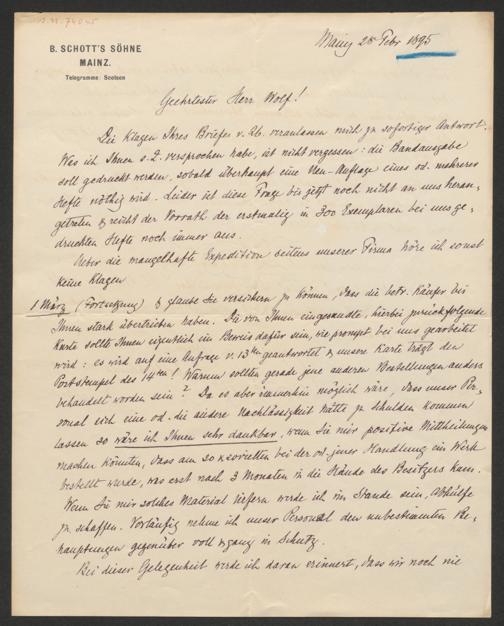 B. SCHOTT'S SÖHNE
MAINZ.
Telegramme: Scotson
Mainz 28 Febr 1895
Geehrtester Herr Wolf!
Die Klagen Ihres Briefes v. 26. veranlassen mich zu sofortiger Antwort.
Was ich Ihnen s. Z. versprochen habe, ist nicht vergessen: die Bandausgabe
soll gedruckt werden, sobald überhaupt eine Neu-Auflage eines od. mehrerer
Hefte nöthig wird. Leider ist diese Frage bis jetzt noch nicht an uns heran-
getreten & reicht der Vorrath der erstmalig in 300 Exemplaren bei uns ge-
druckten Hefte noch immer aus.
Ueber die mangelhafte Expedition seitens unserer Firma höre ich sonst
keine Klagen
1 März (Fortsetzung) & glaube Sie versichern zu können, dass die betr. Käufer bei
Ihnen stark übertrieben haben. Die von Ihnen eingesandte, hierbei zurückfolgende
Karte sollte Ihnen eigentlich ein Beweis dafür sein, wie prompt bei uns gearbeitet
wird: es wird auf eine Anfrage v. 13ten geantwortet & unsere Karte trägt den
Poststempel des 14ten! Warum sollten gerade jene anderen Bestellungen anders
behandelt worden sein? Da es aber immerhin möglich wäre, dass unser Per-
sonal sich eine od. die andere Nachlässigkeit hätte zu Schulden kommen
lassen so wäre ich Ihnen sehr dankbar, wenn Sie mir positive Mittheilungen
machen könnten, dass am so & sovielten bei der od. jener Handlung ein Werk
bestellt wurde, was erst nach 3 Monaten in die Hände des Besitzers kam.
Wenn Sie mir solches Material liefern werde ich im Stande sein, Abhülfe
zu schaffen. Vorläufig nehme ich unser Personal den unbestimmten Be-
hauptungen gegenüber voll & ganz in Schutz.
Bei dieser Gelegenheit werde ich daran erinnert, dass wir noch nie